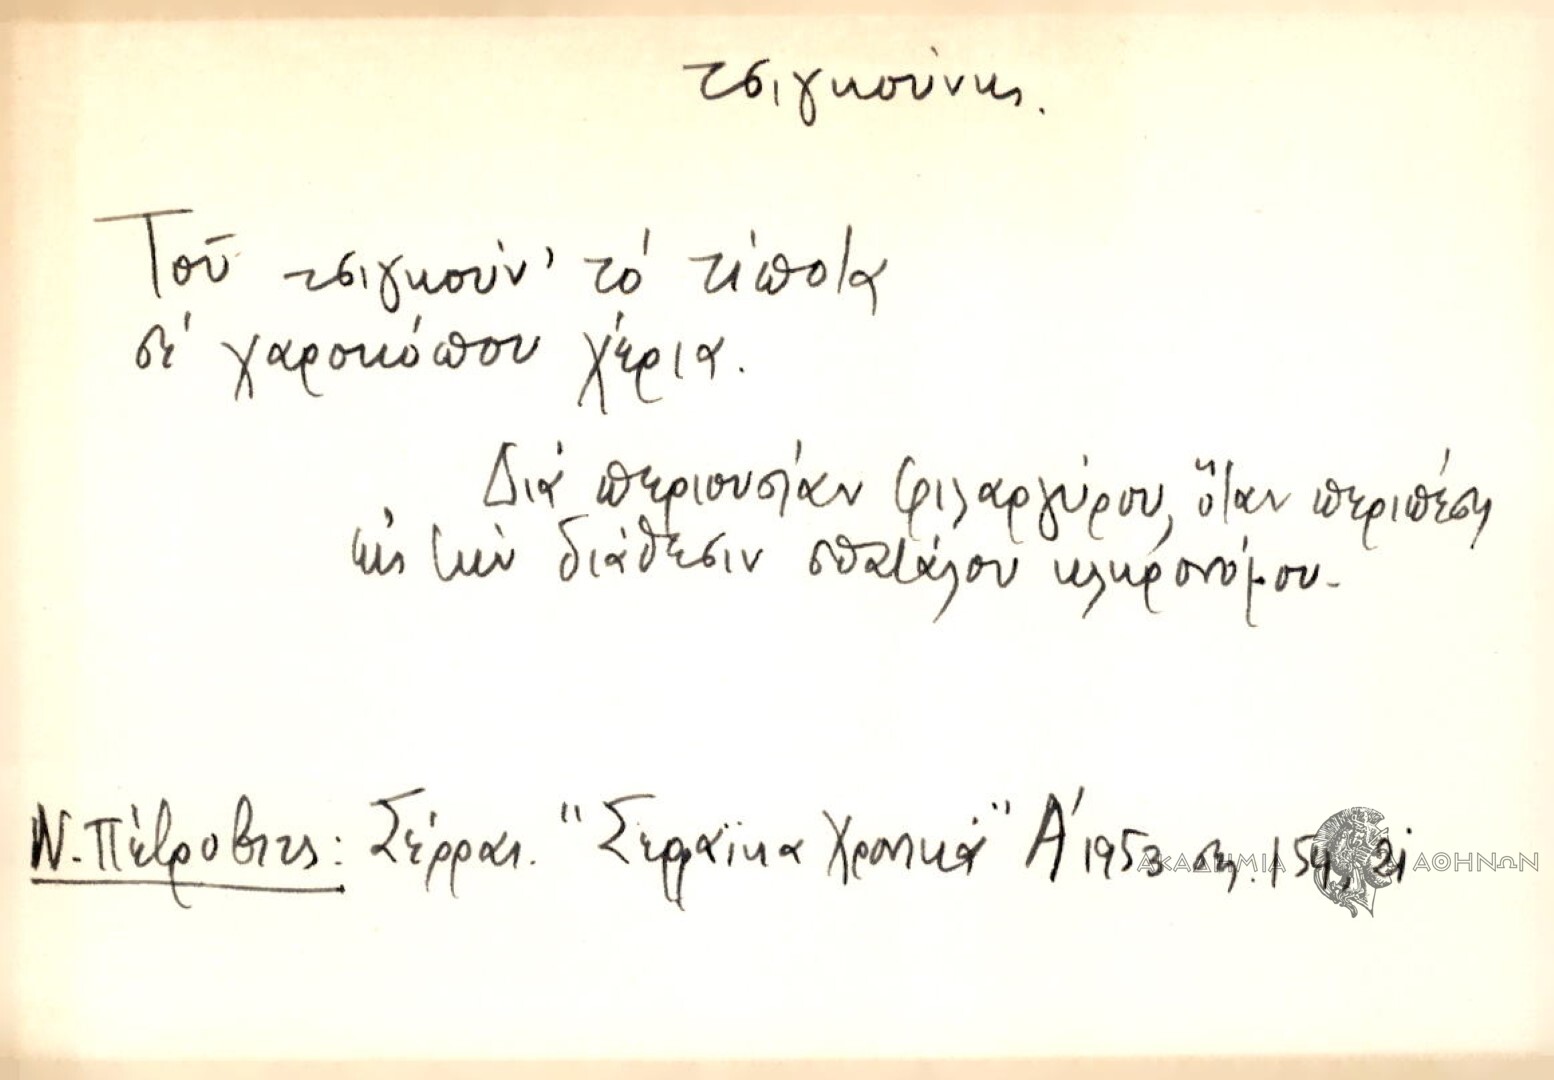 τσιγκούνης.
Τοῦ τσιγκούν' τό τίποτα
σέ χαροκόπου χέρια.
Διά περιουσίαν φιλαργύρου, ὅταν περιπέσῃ
εἰς τήν διάθεσιν σπατάλου κληρονόμου.
Ν. Πέτροβιτς: Σέρραι. "Σερραϊκα Χρονικά" Α' 1953 σελ. 154,
ΑΚΑΔΗΜΙΑ ΑΘΗΝΩΝ